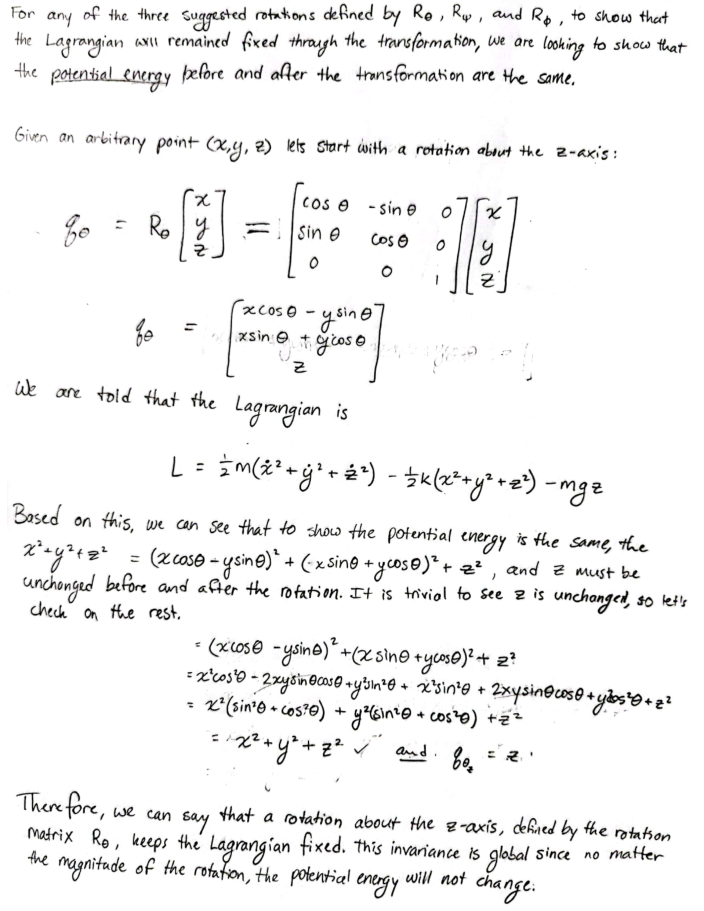 For any of the three suggested rotations defined by Rθ, Rψ, and Rφ, to show that
the Lagrangian will remained fixed through the transformation, we are looking to show that
the potential energy before and after the transformation are the same.
Given an arbitrary point (x,y,z) lets start with a rotation about the z-axis:
qθ = Rθ [x y z] = [cosθ -sinθ 0; sinθ cosθ 0; 0 0 1] [x y z]
qθ = [xcosθ - ysinθ; xsinθ + ycosθ; z]
We are told that the Lagrangian is
L = ½m(ẋ²+ẏ²+ż²) - ½k(x²+y²+z²) - mgz
Based on this, we can see that to show the potential energy is the same, the
x²+y²+z² = (xcosθ - ysinθ)² + (xsinθ + ycosθ)² + z², and z must be
unchanged before and after the rotation. It is trivial to see z is unchanged, so let's
check on the rest.
= (xcosθ - ysinθ)² + (xsinθ + ycosθ)² + z²
= x²cos²θ - 2xysinθcosθ + y²sin²θ + x²sin²θ + 2xysinθcosθ + y²cos²θ + z²
= x²(sin²θ + cos²θ) + y²(sin²θ + cos²θ) + z²
= x² + y² + z² ✓ and qθz = z.
Therefore, we can say that a rotation about the z-axis, defined by the rotation
matrix Rθ, keeps the Lagrangian fixed. This invariance is global since no matter
the magnitude of the rotation, the potential energy will not change.